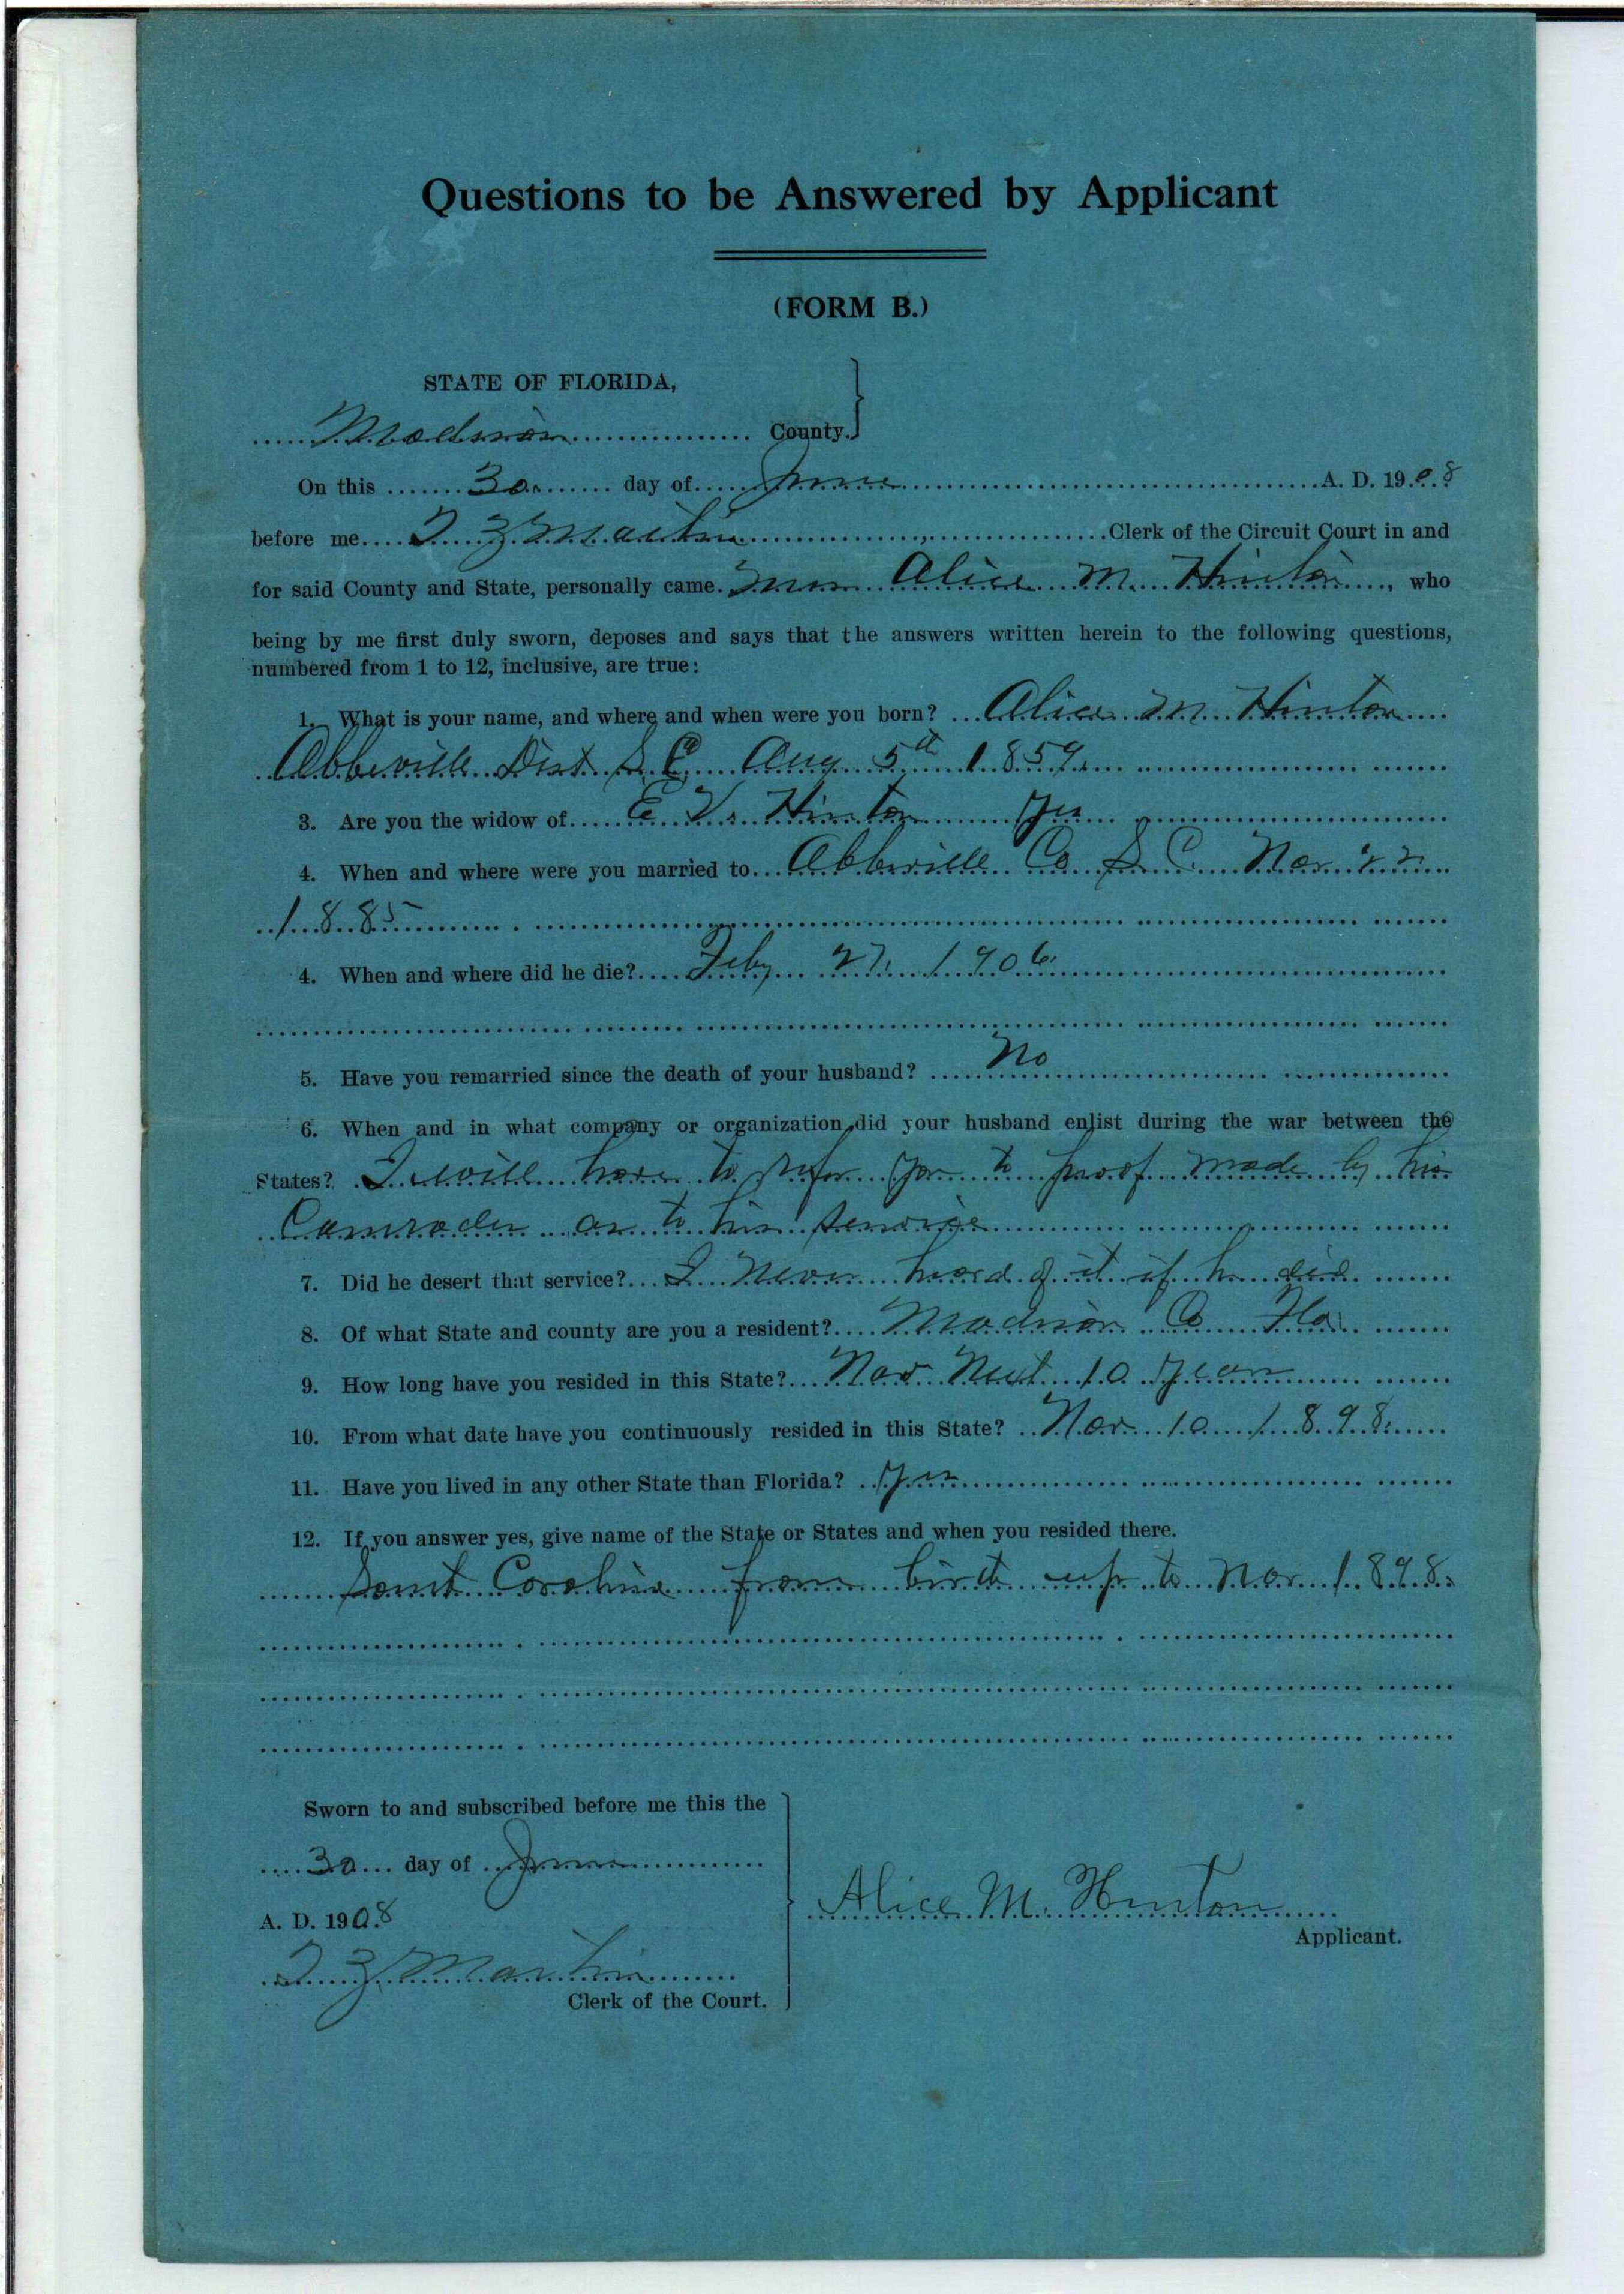 Questions to be Answered by Applicant
(FORM B.)
STATE OF FLORIDA,
Madison County.
On this 30 day of June A. D. 1908
before me T Z Martin Clerk of the Circuit Court in and
for said County and State, personally came Mrs Alice M. Hinton, who
being by me first duly sworn, deposes and says that the answers written herein to the following questions,
numbered from 1 to 12, inclusive, are true:
1. What is your name, and where and when were you born? Alice M Hinton
Abbeville Dist S. C. Aug 5th 1859
3. Are you the widow of E. V. Hinton Yes
4. When and where were you married to Abbeville Co S. C. Nov 22
1885
4. When and where did he die? Feby 27 1906
5. Have you remarried since the death of your husband? No
6. When and in what company or organization did your husband enlist during the war between the
States? I will have to refer you to proof made by his
Comrades as to his service
7. Did he desert that service? I never heard of it if he did
8. Of what State and county are you a resident? Madison Co Fla
9. How long have you resided in this State? Nov Next 10 years
10. From what date have you continuously resided in this State? Nov 10 1898
11. Have you lived in any other State than Florida? Yes
12. If you answer yes, give name of the State or States and when you resided there.
South Carolina from birth up to Nov 1898
Sworn to and subscribed before me this the
30 day of June
A. D. 1908
T Z Martin
Clerk of the Court.
Alice M. Hinton
Applicant.